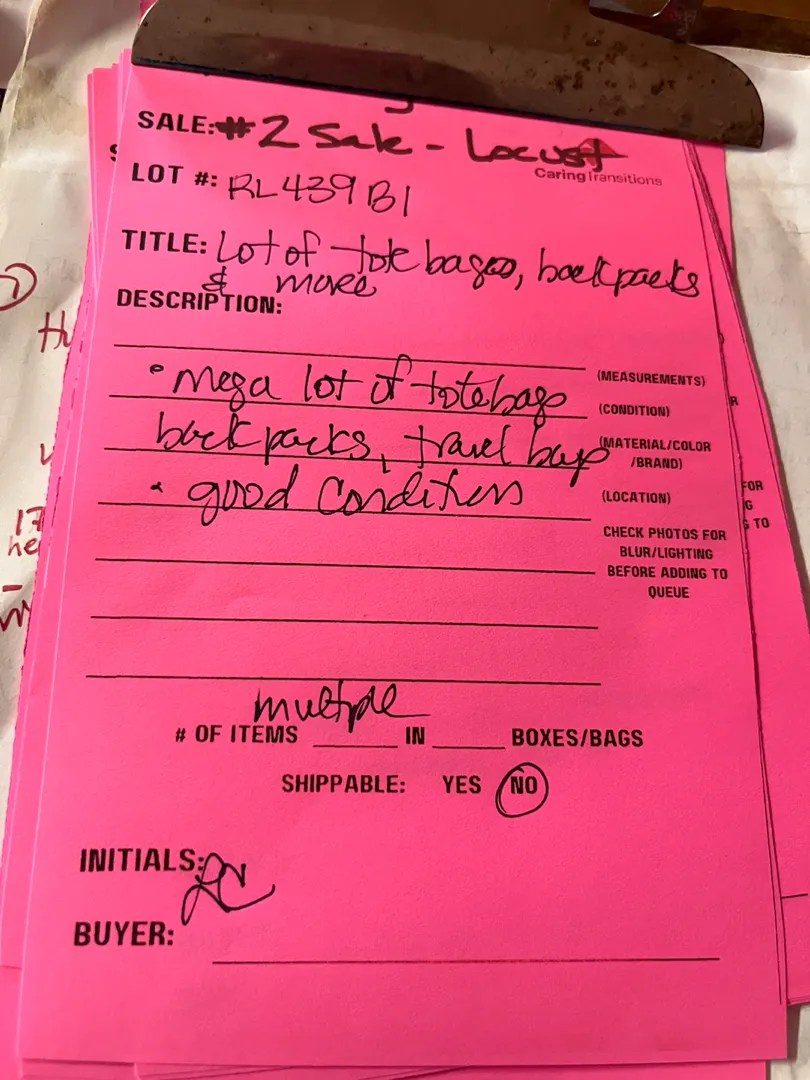 SALE: #2 Sale - Locust
CaringTransitions
LOT #: RL439B1
TITLE: Lot of tote bags, backpacks
& more
DESCRIPTION:
(MEASUREMENTS)
• mega lot of totebags
(CONDITION)
backpacks, travel bags
(MATERIAL/COLOR
/BRAND)
• good conditions
(LOCATION)
CHECK PHOTOS FOR
BLUR/LIGHTING
BEFORE ADDING TO
QUEUE
multiple
# OF ITEMS ____ IN ____ BOXES/BAGS
SHIPPABLE: YES NO
INITIALS: LC
BUYER: